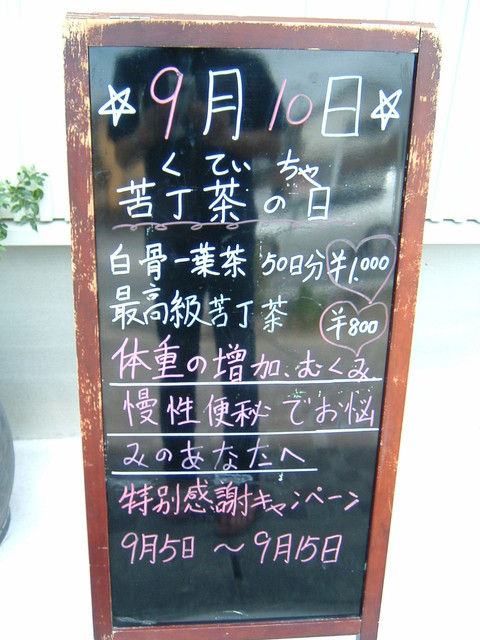 ☆9月10日☆
くていちゃ
苦丁茶の日
白骨一葉茶 50日分¥1,000
最高級苦丁茶 ¥800
体重の増加、むくみ
慢性便秘でお悩
みのあなたへ
特別感謝キャンペーン
9月5日～9月15日